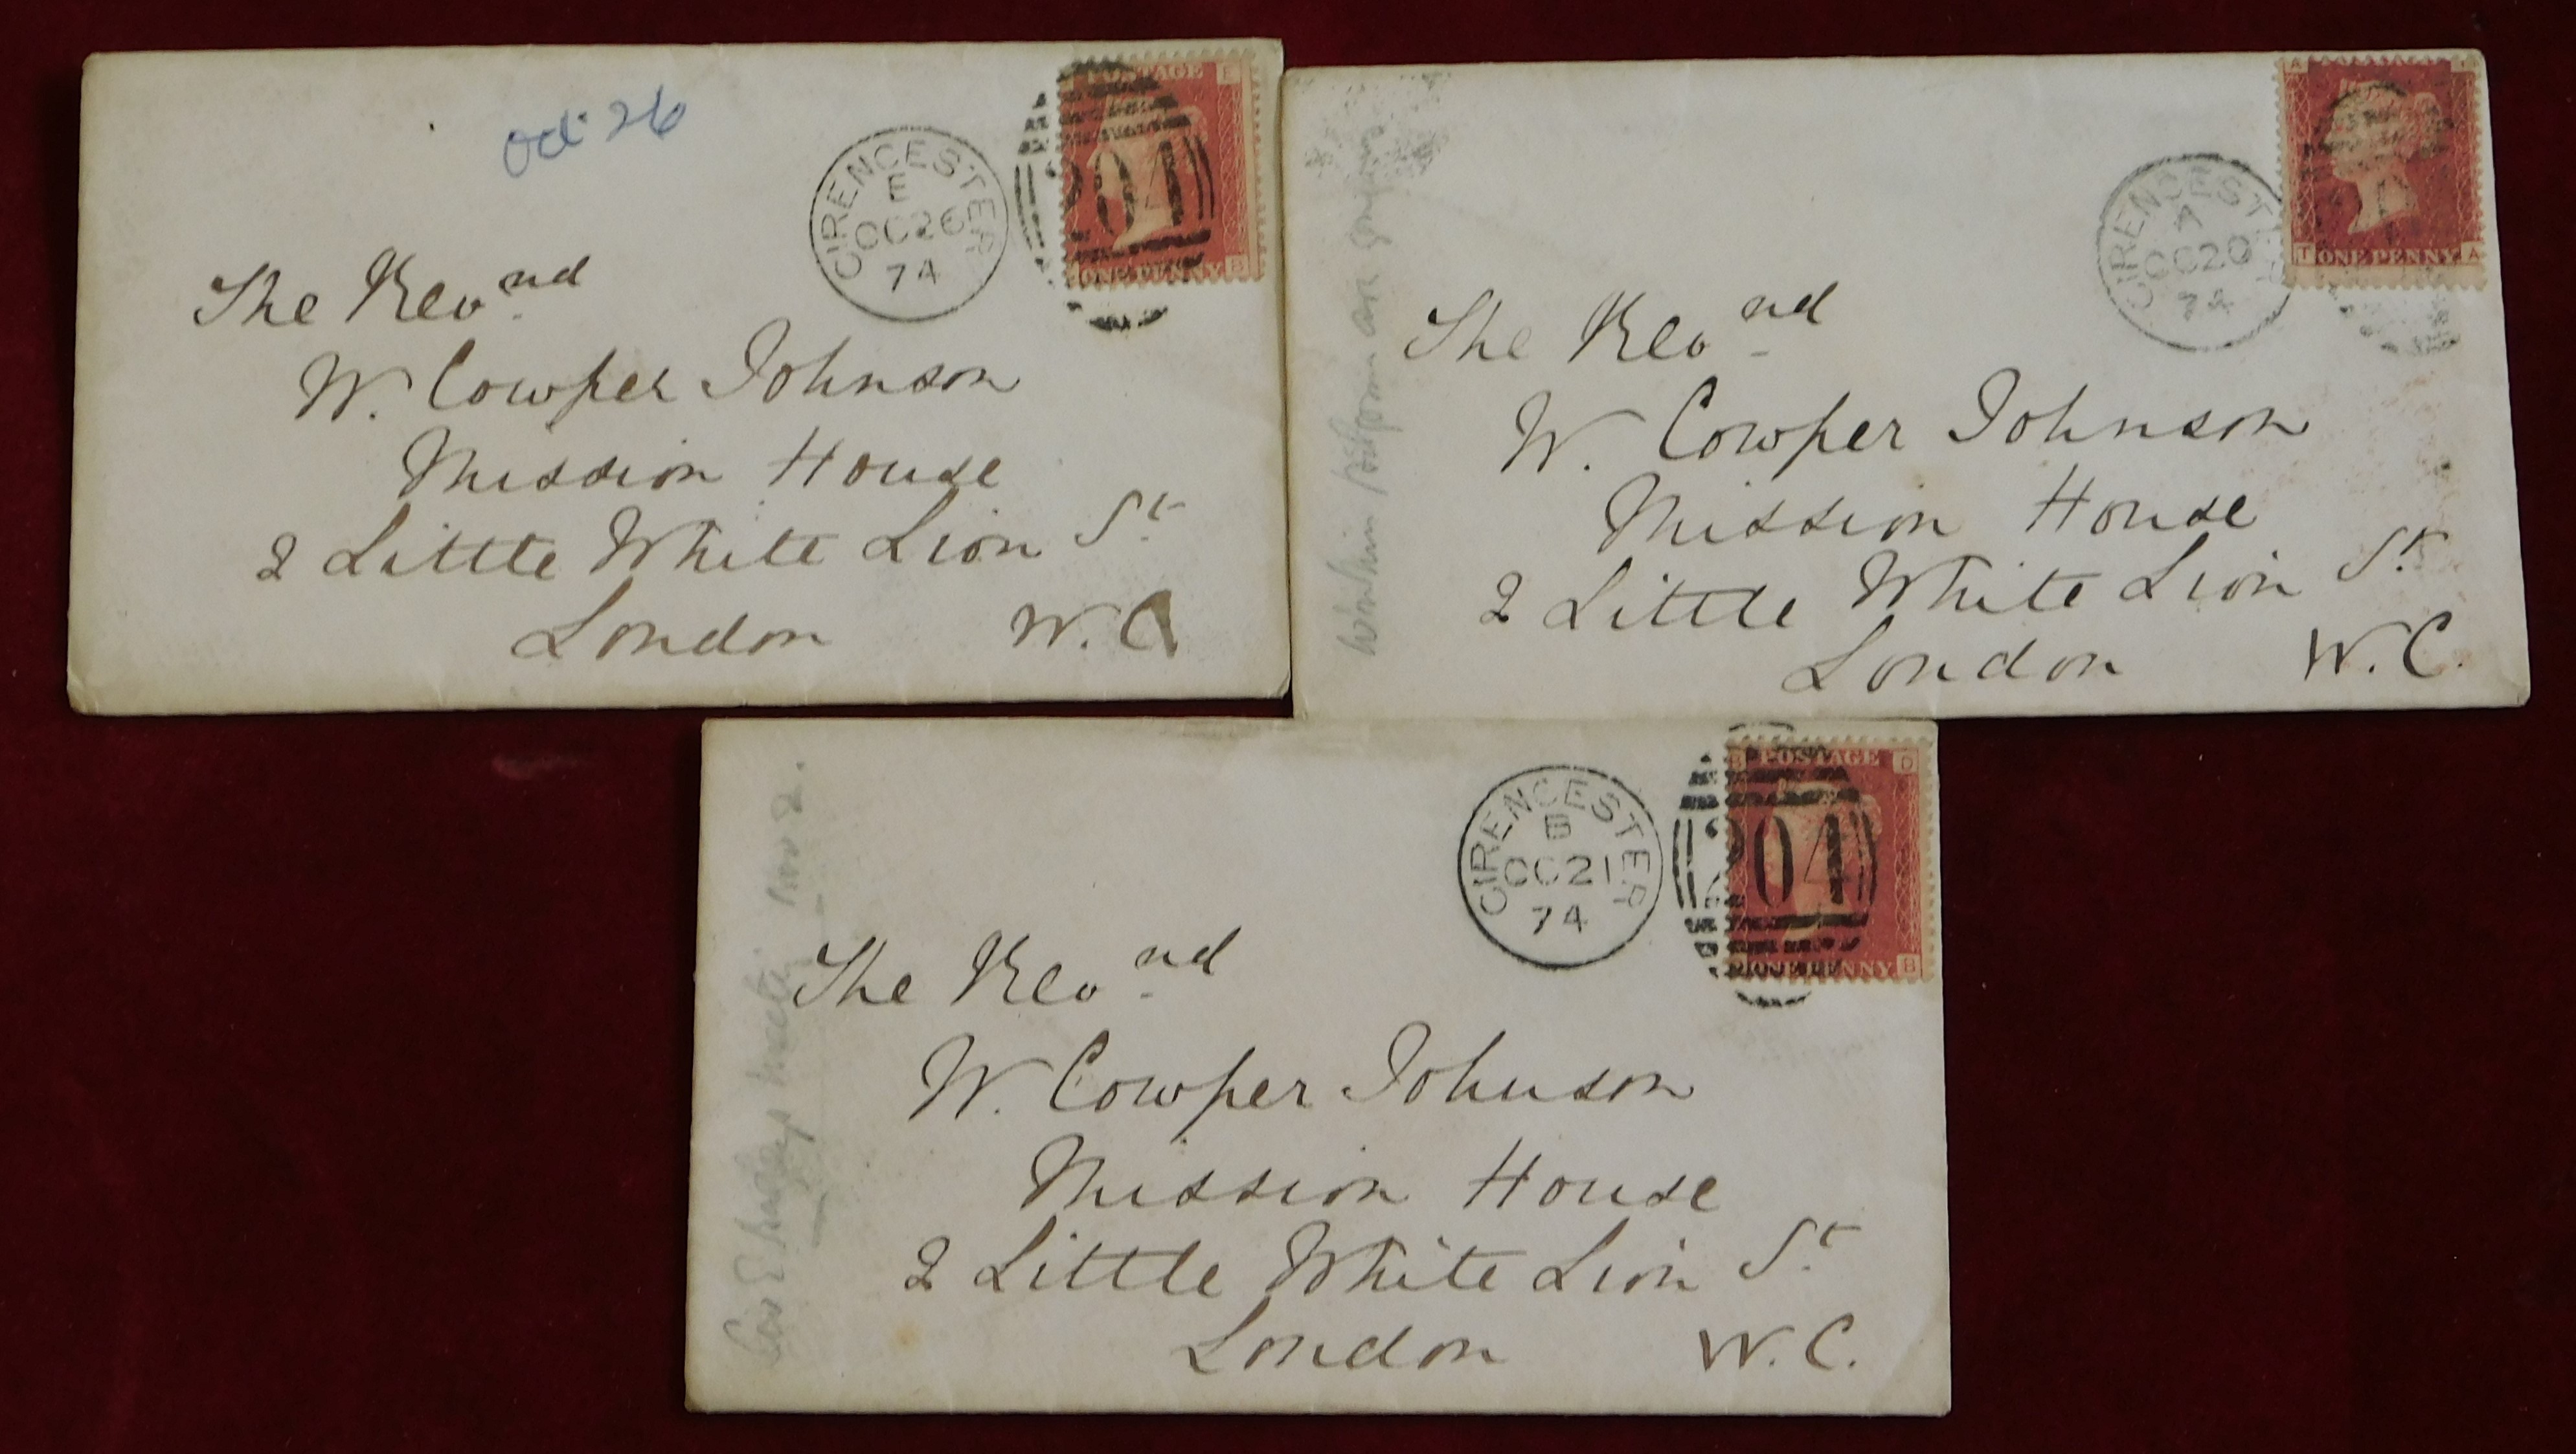 Oct 26
CIRENCESTER
E
OC 26
74
POSTAGE
E
204
ONE PENNY
B
The Revnd
W. Cowper Johnson
Mission House
2 Little White Lion St.
London W.C
CIRENCESTER
OC 20
74
A
T ONE PENNY A
The Revnd
W. Cowper Johnson
Mission House
2 Little White Lion St.
London W.C.
CIRENCESTER
OC 21
74
B POSTAGE D
204
ONE PENNY B
Nov 2.
The Revnd
W. Cowper Johnson
Mission House
2 Little White Lion St.
London W.C.